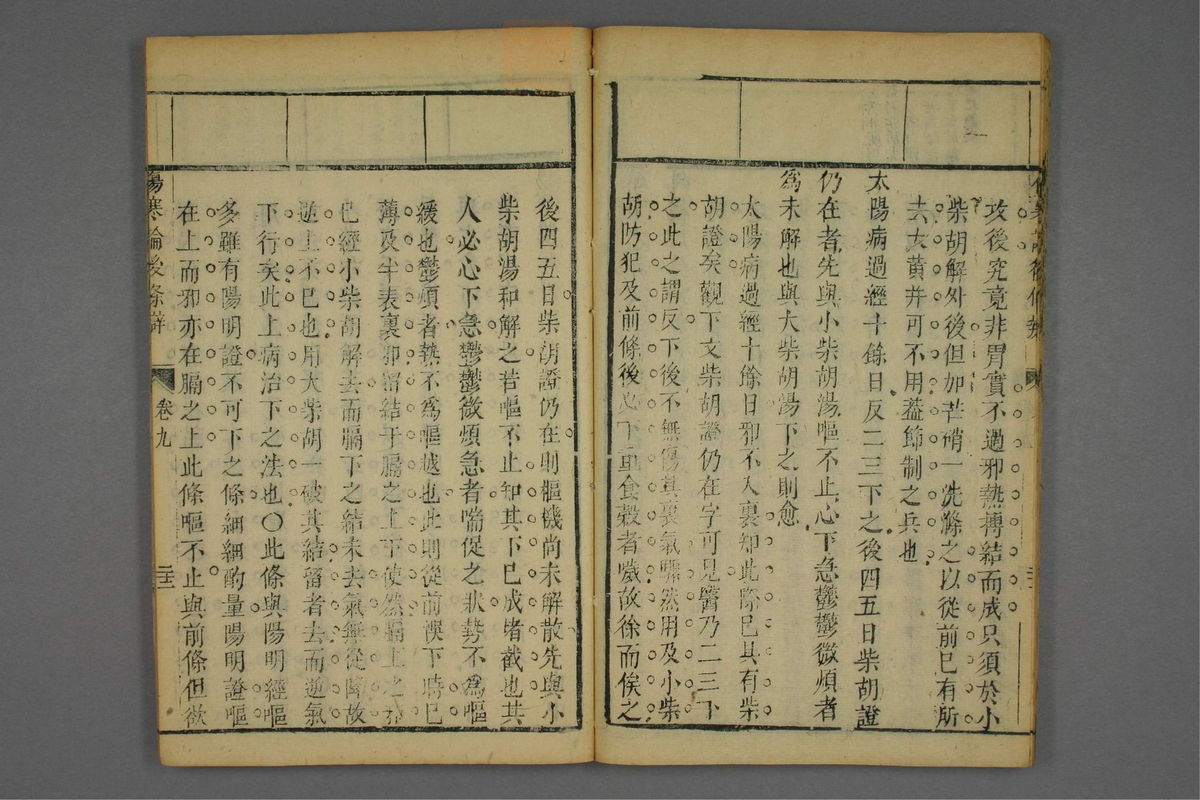 攻後究竟非胃實不過邪熱摶結而成只須於小
柴胡解外後但加芒硝一洗滌之以從前已有所
去大黃并可不用葢節制之兵也
太陽病過經十餘日反二三下之後四五日柴胡證
仍在者先與小柴胡湯嘔不止心下急鬱鬱微煩者
為未解也與大柴胡湯下之則愈
太陽病過經十餘日邪不入裏知此際已具有柴
胡證矣觀下文柴胡證仍在字可見醫乃二三下
之此之謂反下後不無傷其裏氣驟然用及小柴
胡防犯及前條後必下重食穀者噦故徐而俟之
後四五日柴胡證仍在則樞機尚未解散先與小
柴胡湯和解之若嘔不止知其下已成堵截也其
人必心下急鬱鬱微煩急者喘促之狀勢不為嘔
緩也鬱煩者熱不為嘔越也此則從前悞下時已
薄及半表裏邪畱結于膈之上下使然膈上之邪
已經小柴胡解去而膈下之結未去氣無從降故
逆上不已也用大柴胡一破其結畱者去而逆氣
下行矣此上病治下之法也〇此條與陽明經嘔
多雖有陽明證不可下之條細細酌量陽明證嘔
在上而邪亦在膈之上此條嘔不止與前條但欲
傷寒論後條辯
卷九